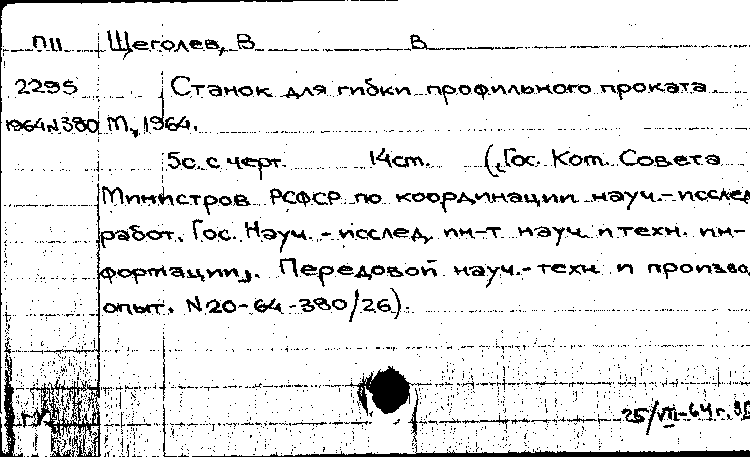 П11 Щеголев, В В
2295 Станок для гибки профильного проката.
1964 N380 М., 1964.
5с. с черт. 14см. („Гос. Ком. Совета
Министров РСФСР по координации науч.-исслед
работ. Гос. Науч. - исслед. ин-т науч. и техн. ин-
формации„. Передовой науч.-техн. и произво
опыт. N20-64-380/26).
25/VII-64г.